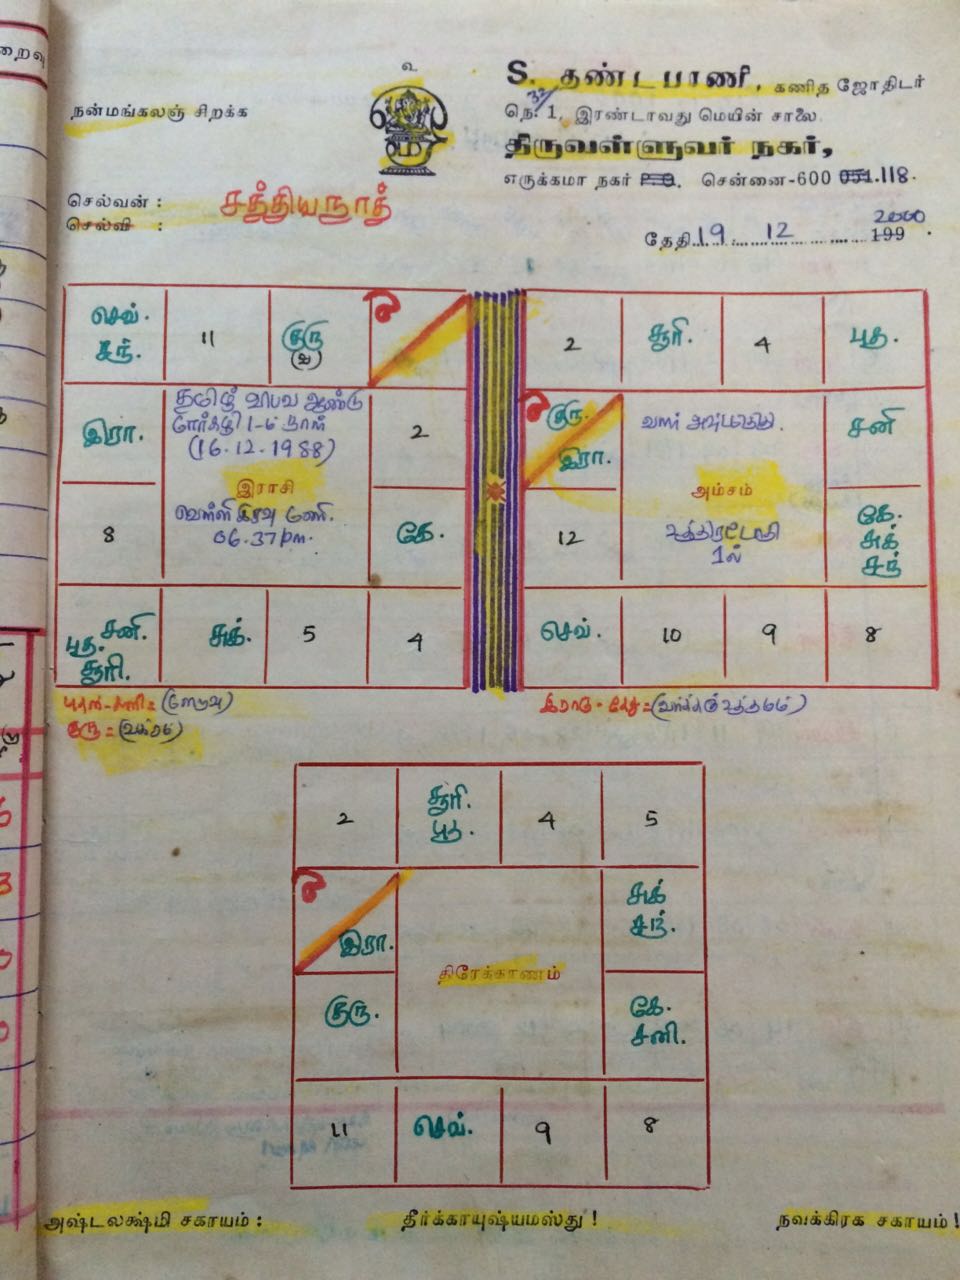 றைவு
உ
நன்மங்கலஞ் சிறக்க
S. தண்டபாணி, கணித ஜோதிடர்
நெ. 1, 33/ இரண்டாவது மெயின் சாலை
திருவள்ளுவர் நகர்,
எருக்கமா நகர் சென்னை-600 118.
செல்வன் :
செல்வி :
சத்தியநாத்
தேதி 19 12 2000
199
செவ். சந். 11 குரு (வ) ல
இரா. 2
தமிழ் விபவ ஆண்டு
மார்கழி 1-ம் நாள்
(16.12.1988)
இராசி
வெள்ளி இரவு மணி.
06.37pm.
8 கே.
சனி. புத. சூரி. சுக். 5 4
2 சூரி. 4 புத.
ல குரு. இரா. சனி
வளர் அஷ்டமி திதி.
அம்சம்
உத்திரட்டாதி
1ல்
12 கே. சுக் சந்
செவ். 10 9 8
புதன்-சனி= (மௌடி)
குரு = (வக்ரம்)
இராகு-கேது=(வர்க்கோத்தமம்)
2 சூரி. புத. 4 5
ல இரா. சுக் சந்.
திரேக்காணம்
குரு. கே. சனி.
11 செவ். 9 8
அஷ்டலக்ஷ்மி சகாயம் : தீர்க்காயுஷ்யமஸ்து ! நவக்கிரக சகாயம் !